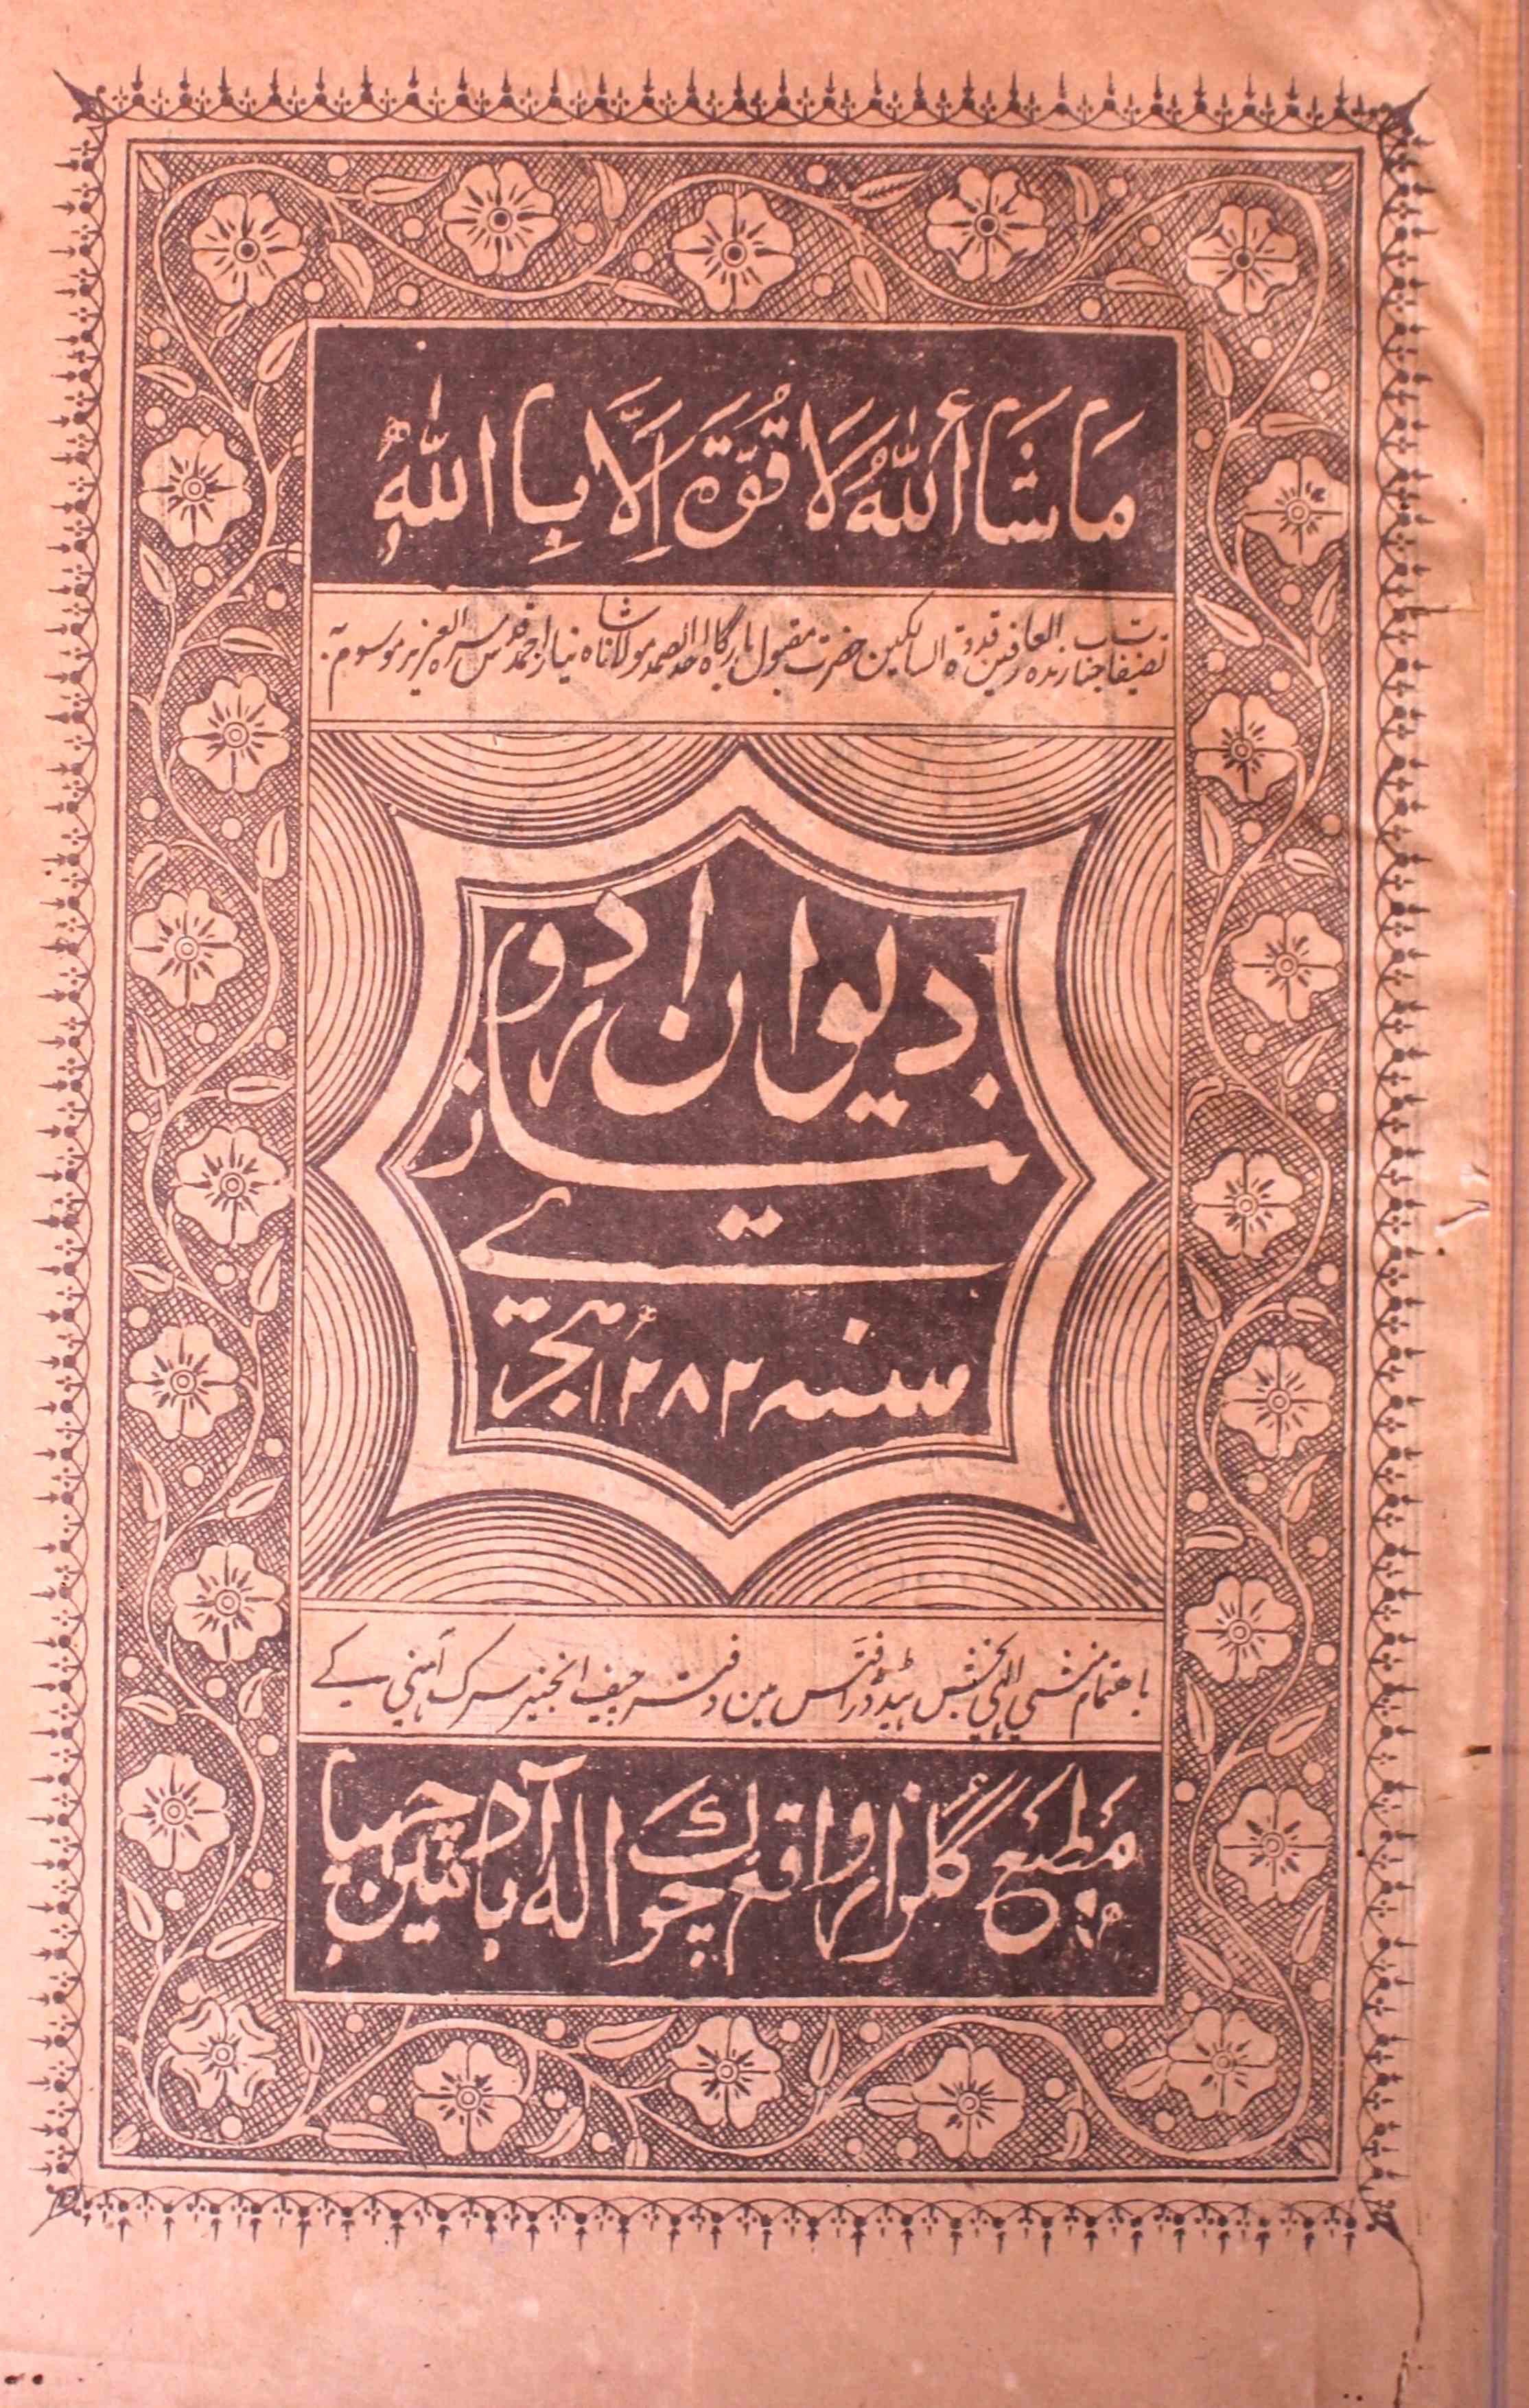 مَاشَاءَ اللّٰهُ لَا قُوَّةَ اِلَّا بِاللّٰهِ
تصنیفات جناب زبدہ العارفین قدوۃ السالکین حضرت مقبول بارگاہ احد الصمد مولانا شاہ نیاز احمد قدس سرہ العزیز موسوم بہ
دیوان اردو
نیاز
سنہ ۱۲۸۲ ہجرے
باھتمام منشی الہی بخش ہیڈ ڈرافٹس مین دفتر چیف انجنیر سرک آہنی کے
مطبع گلزار واقع چوک الہ آباد میں چھپا